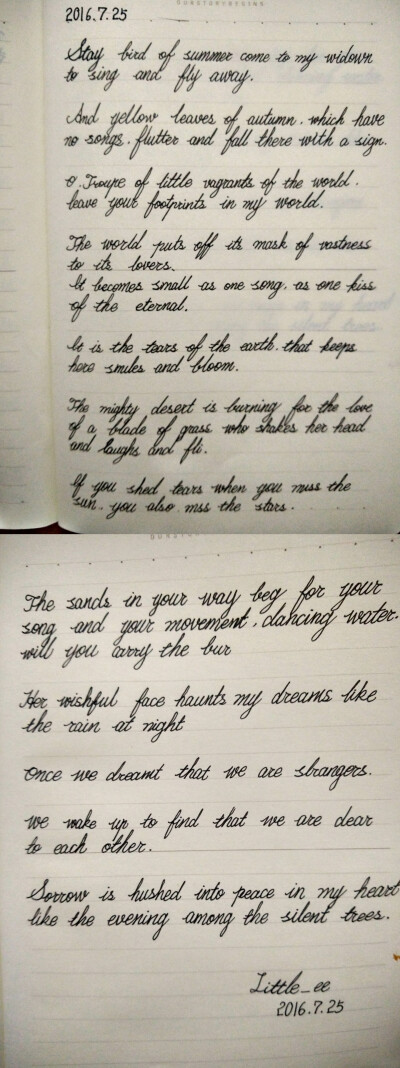 2016.7.25
Stay bird of summer come to my widown
to sing and fly away.
And yellow leaves of autumn. which have
no songs. flutter and fall there with a sign.
O. Troupe of little vagrants of the world.
leave your footprints in my world.
The world puts off its mask of vastness
to its lovers.
It becomes small as one song. as one kiss
of the eternal.
It is the tears of the earth. that keeps
here smiles and bloom.
The mighty desert is burning for the love
of a blade of grass who shakes her head
and laughs and fli.
If you shed tears when you miss the
sun. you also mss the stars.
The sands in your way beg for your
song and your movement, dancing water.
will you carry the bur
Her wishful face haunts my dreams like
the rain at night
Once we dreamt that we are strangers.
we wake up to find that we are dear
to each other.
Sorrow is hushed into peace in my heart
like the evening among the silent trees.
Little_ee
2016.7.25